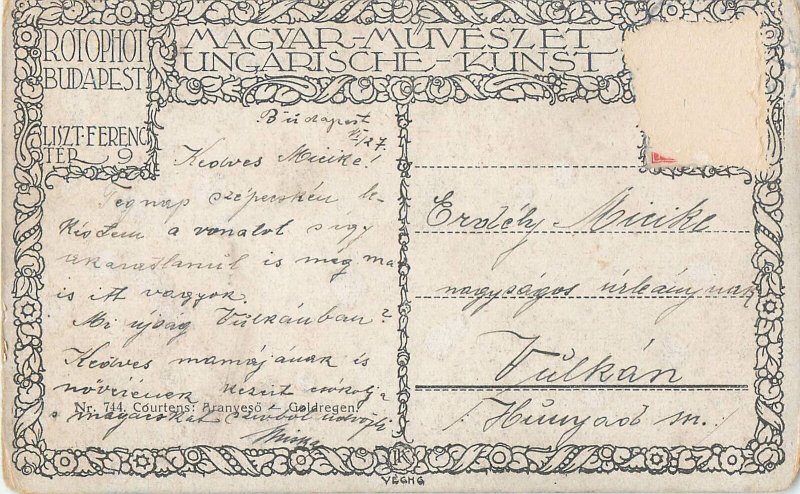 ROTOPHOT
BUDAPEST
LISZT-FERENC
TÉR 9
MAGYAR-MŰVÉSZET
UNGARISCHE-KUNST
Budapest
VI/27.
Kedves Micike!
Tegnap szépecskén le-
késtem a vonatot s így
akaratlanul is még ma
is itt vagyok.
Mi újság Vulkánban?
Kedves mamájának és
nővérének kezeit csókolja
magácskát szívből üdvözli
Nr. 714. Courtens: Aranyeső – Goldregen.
Erdély Micike
nagyságos úrleánynak
Vulkán
(Hunyad m.)
VÉGHG